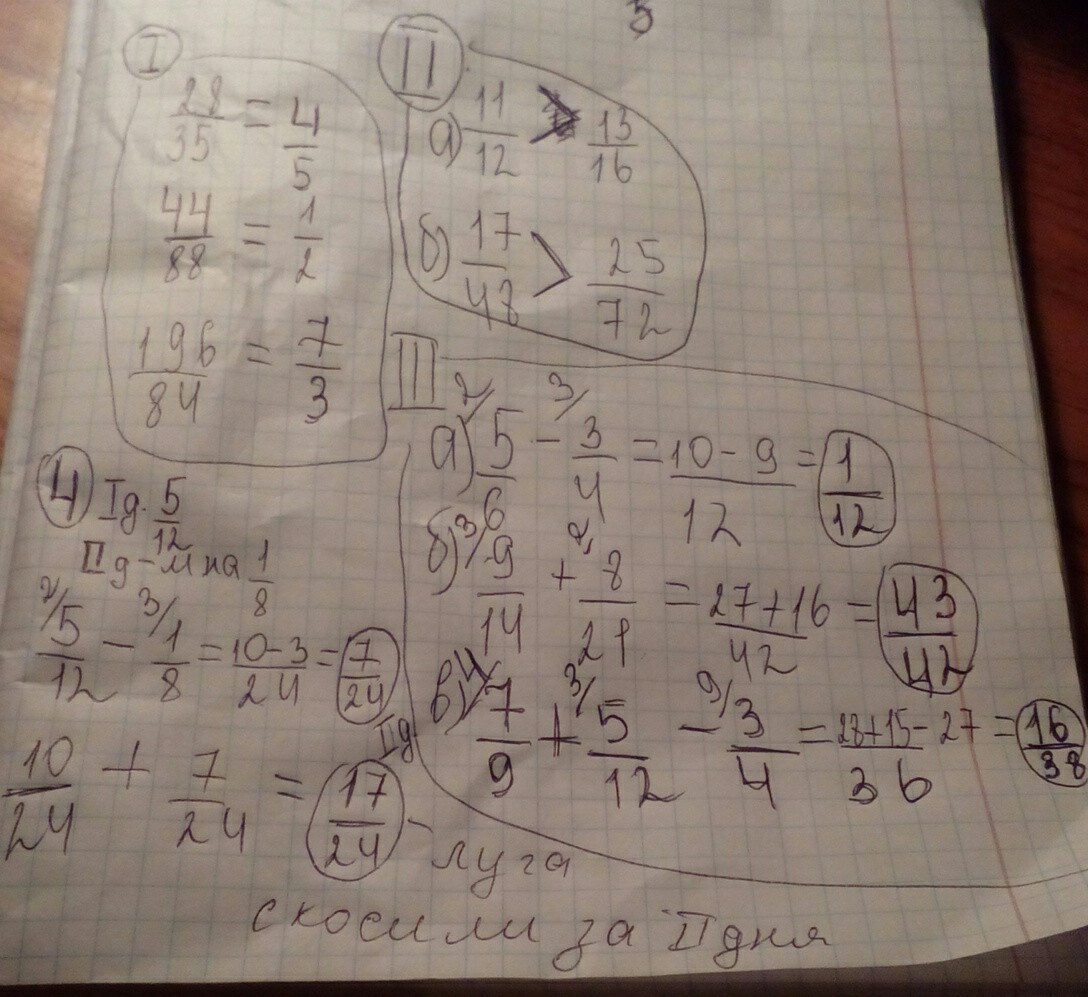 5
I
28/35 = 4/5
44/88 = 1/2
196/84 = 7/3
II
а) 11/12 > 13/16
б) 17/48 > 25/72
III
а) 2/ 5/6 - 3/ 3/4 = 10-9/12 = 1/12
б) 3/ 9/14 + 2/ 8/21 = 27+16/42 = 43/42
в) 4/ 7/9 + 3/ 5/12 - 9/ 3/4 = 28+15-27/36 = 16/38
4 Iд. 5/12
IIд - м на 1/8
2/ 5/12 - 3/ 1/8 = 10-3/24 = 7/24 IIд
10/24 + 7/24 = 17/24 - луга
скосили за II дня